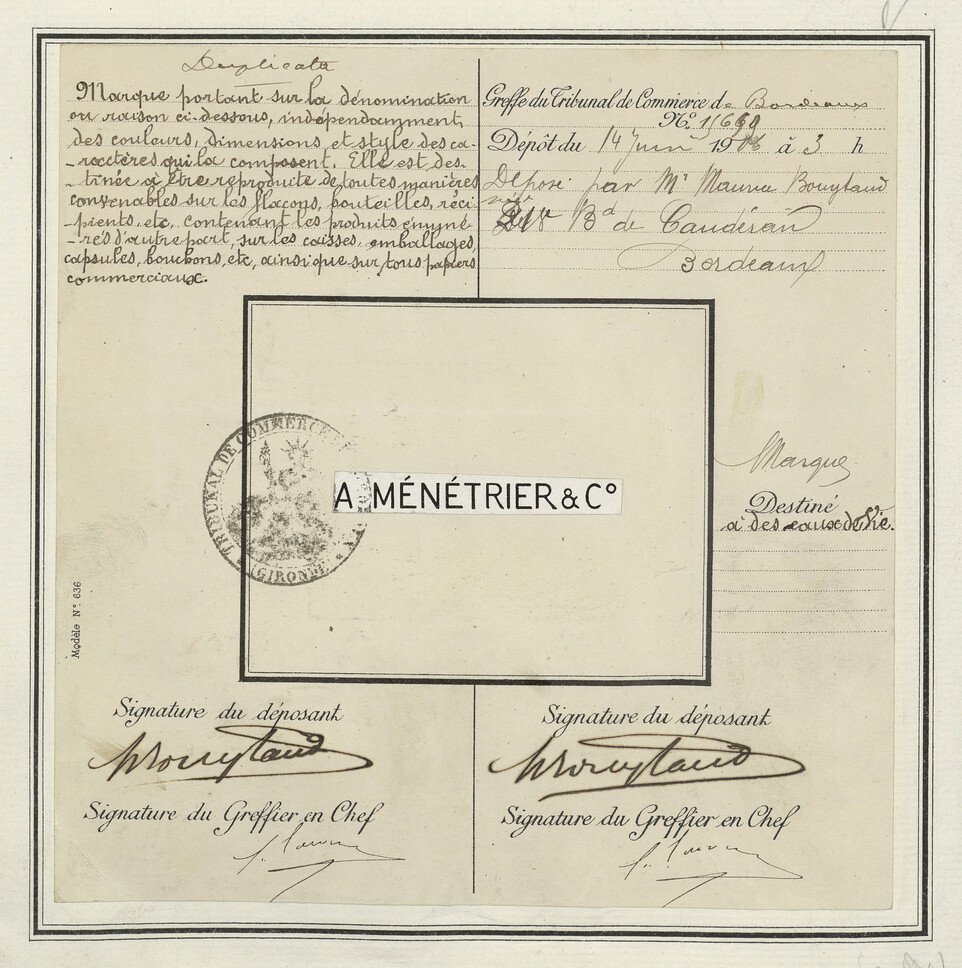 Duplicata
Marque portant sur la dénomination
ou raison ci-dessous, indépendamment
des couleurs, dimensions et style des ca-
-ractères qui la composent. Elle est des-
-tinée à être reproduite de toutes manières
convenables sur les flacons, bouteilles, réci-
pients, etc, contenant les produits énumé-
-rés d'autre part, sur les caisses, emballages,
capsules, bouchons, etc, ainsi que sur tous papiers
commerciaux.
Greffe du Tribunal de Commerce de Bordeaux
N°
Dépôt du 14 Juin 19 à 3 h
Déposé par Mr Maurice Bouytaud
Bd de Caudéran
Bordeaux
TRIBUNAL DE COMMERCE
GIRONDE
A. MÉNÉTRIER & C°
Marque
Destiné
à des eaux de Vie.
Modèle N° 636
Signature du déposant
Bouytaud
Signature du Greffier en Chef
Signature du déposant
Bouytaud
Signature du Greffier en Chef